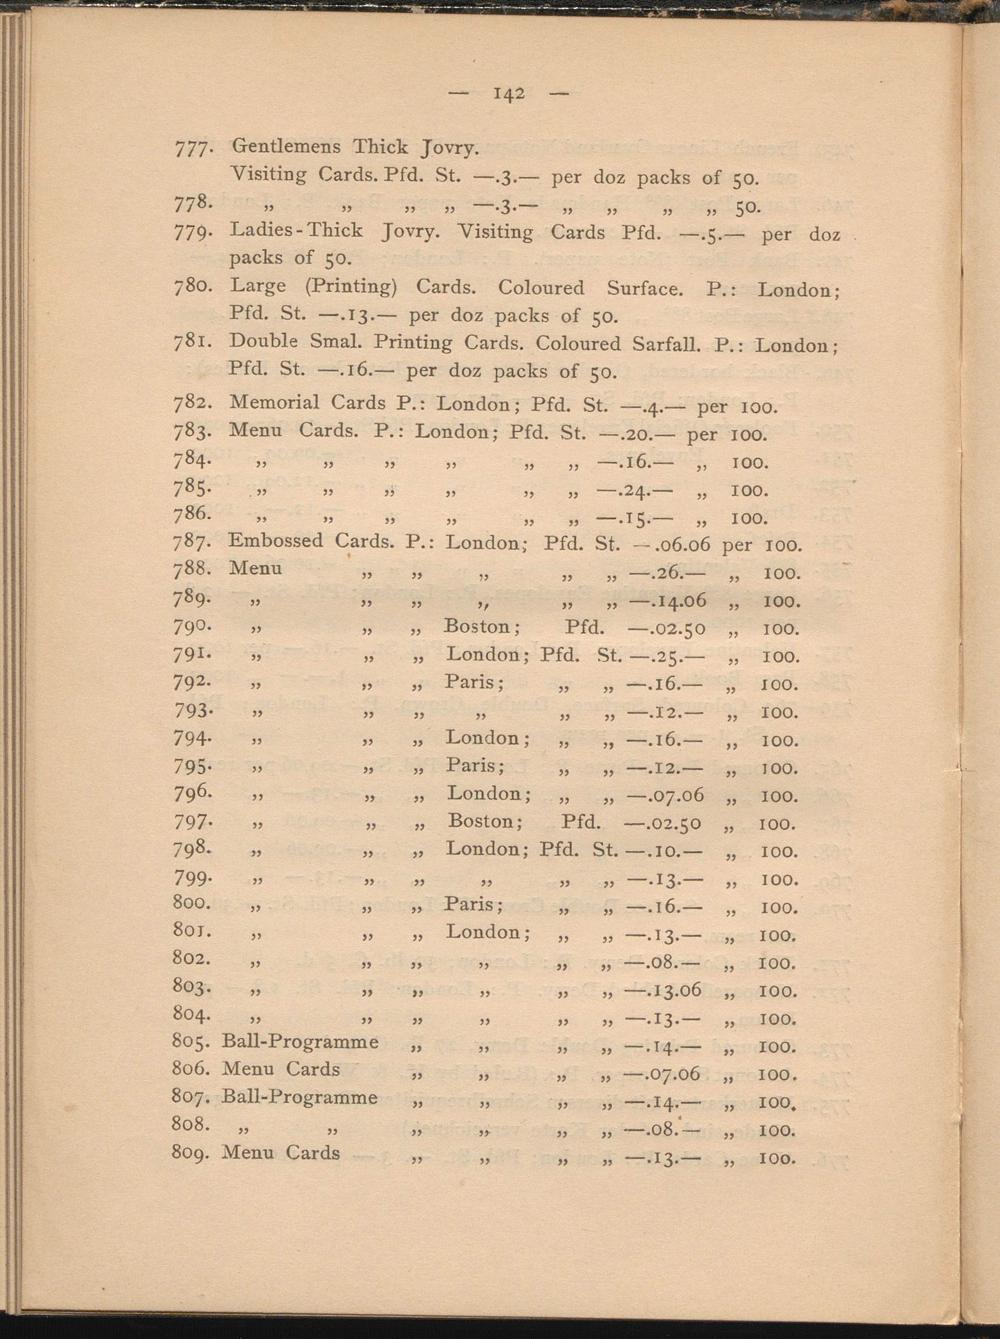 — 142 —
777. Gentlemens Thick Jovry.
Visiting Cards. Pfd. St. —.3.— per doz packs of 50.
778. „ „ „ „ —.3.— „ „ „ „ 50.
779. Ladies-Thick Jovry. Visiting Cards Pfd. —.5.— per doz
packs of 50.
780. Large (Printing) Cards. Coloured Surface. P.: London;
Pfd. St. —.13.— per doz packs of 50.
781. Double Smal. Printing Cards. Coloured Sarfall. P.: London;
Pfd. St. —.16.— per doz packs of 50.
782. Memorial Cards P.: London; Pfd. St. —.4.— per 100.
783. Menu Cards. P.: London; Pfd. St. —.20.— per 100.
784. „ „ „ „ „ „ —.16.— „ 100.
785. „ „ „ „ „ „ —.24.— „ 100.
786. „ „ „ „ „ „ —.15.— „ 100.
787. Embossed Cards. P.: London; Pfd. St. —.06.06 per 100.
788. Menu „ „ „ „ „ —.26.— „ 100.
789. „ „ „ „ „ „ —.14.06 „ 100.
790. „ „ „ Boston; Pfd. —.02.50 „ 100.
791. „ „ „ London; Pfd. St. —.25.— „ 100.
792. „ „ „ Paris; „ „ —.16.— „ 100.
793. „ „ „ „ „ „ —.12.— „ 100.
794. „ „ „ London; „ „ —.16.— „ 100.
795. „ „ „ Paris; „ „ —.12.— „ 100.
796. „ „ „ London; „ „ —.07.06 „ 100.
797. „ „ „ Boston; Pfd. —.02.50 „ 100.
798. „ „ „ London; Pfd. St. —.10.— „ 100.
799. „ „ „ „ „ „ —.13.— „ 100.
800. „ „ „ Paris; „ „ —.16.— „ 100.
801. „ „ „ London; „ „ —.13.— „ 100.
802. „ „ „ „ „ „ —.08.— „ 100.
803. „ „ „ „ „ „ —.13.06 „ 100.
804. „ „ „ „ „ „ —.13.— „ 100.
805. Ball-Programme „ „ „ „ —.14.— „ 100.
806. Menu Cards „ „ „ „ —.07.06 „ 100.
807. Ball-Programme „ „ „ „ —.14.— „ 100.
808. „ „ „ „ „ „ —.08.— „ 100.
809. Menu Cards „ „ „ „ —.13.— „ 100.